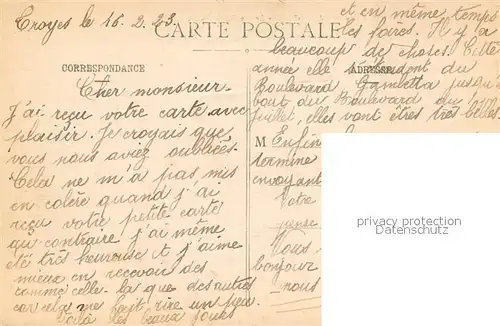 Troyes le 16.2.23.
CARTE POSTALE
CORRESPONDANCE
Cher monsieur.
J'ai reçu votre carte avec
plaisir. Je croyais que
vous nous aviez oubliés.
Cela ne m'a pas mis
en colère quand j'ai
reçu votre petite carte
au contraire j'ai même
été très heureuse et j'aime
mieux en recevoir des
comme celle-là que des autres
car elle me fait rire un peu.
Voilà des beaux jours
et en même temps
les foires. Il y a
beaucoup de choses. Cette
ADRESSE
année elle s'étendent du
Boulevard Gambetta jusqu'au
bout du Boulevard du 14
Juillet, elles vont êtres très belles
M Enfin
termine
envoyant
Votre
pense
Vous
bonjour
nous
privacy protection
www.oldthing.net